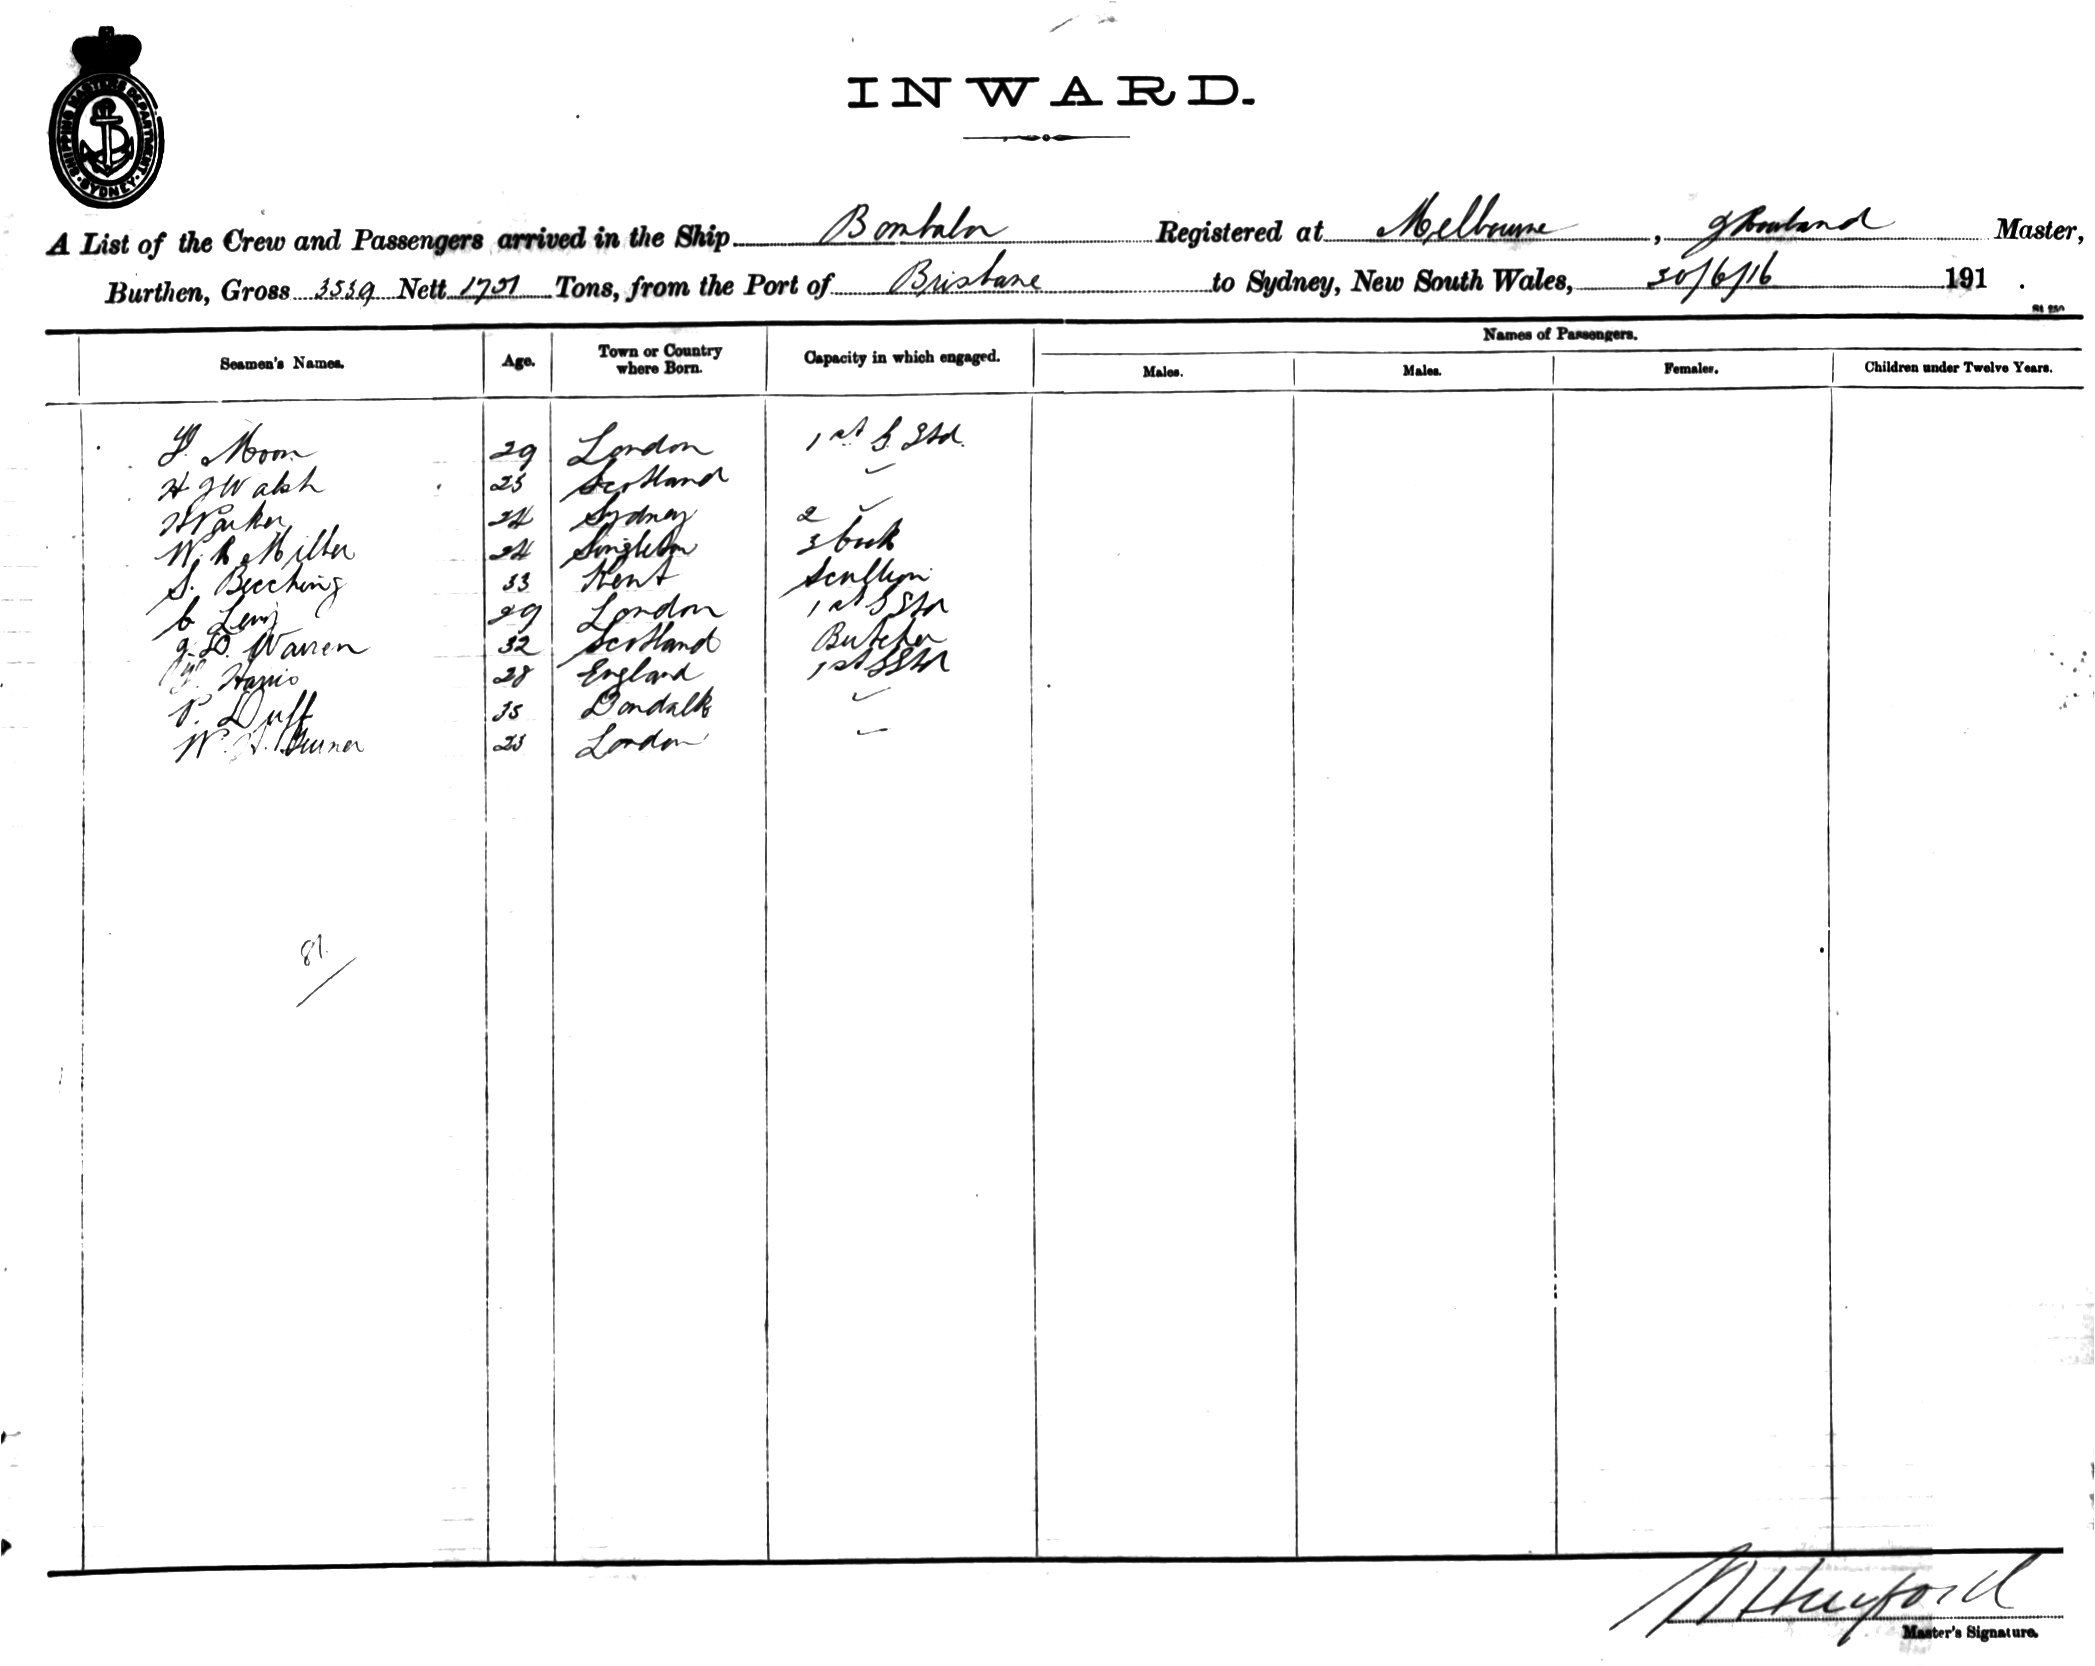 SHIPPING MASTER'S DEPARTMENT
SYDNEY
INWARD.
A List of the Crew and Passengers arrived in the Ship Bombala Registered at Melbourne, J Rowland Master,
Burthen, Gross 3539 Nett Tons, from the Port of Brisbane to Sydney, New South Wales, 30/6/16 191 .
Names of Passengers.
Seamen's Names. Age. Town or Country where Born. Capacity in which engaged. Males. Males. Females. Children under Twelve Years.
Moon 29 London 1st S Std.
H J Walsh 23 Scotland "
H Parker 24 Sydney 2 "
W. R Miller 24 Singleton 3 Cook
S. Beeching 33 Kent Scullion
C Levy 29 London 1st S Std
J. D. Warren 32 Scotland Butcher
Harris 28 England 1st S Std
P. Duff 35 Dondalk "
W. H. Turner 23 London "
81
Master's Signature.